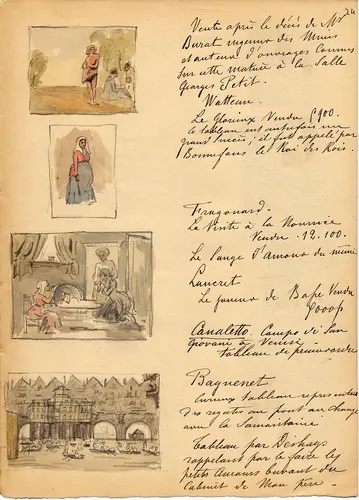 24
Vente après le décès de Mr
Burat ingénieur des Mines
et auteur d'ouvrages connus
sur cette matière à la Salle
Georges Petit.
Watteau.
Le Glorieux Vendu 5900.
le tableau eut autrefois un
grand succès; il fut appelé par
le Roi des Rois.
Fragonard.
La Visite à la Nourrice
Vendu. 12.100.
Le Songe d'Amour du même
Lancret
Le fumeur de Vendu
Canaletto. Campo de San
Giovani à Venise.
tableau de premier ordre
Raguenet
Curieux tableau représentant
des regates au pont au change
avec la Samaritaine.
Tableau par Deshays
rappelant par le faire les
petits Amours buvant du
Cabinet de Mon père.